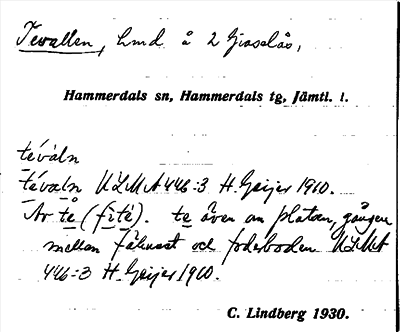 Tevallen, lmd å 2 Gisselås,
Hammerdals sn, Hammerdals tg, Jämtl. l.
téváln
téváln ULMA 446:3 H. Geijer 1910.
Av té (fité). te även om platsen, gången
mellan fähuset och foderboden ULMA
446:3 H. Geijer 1910.
C. Lindberg 1930.